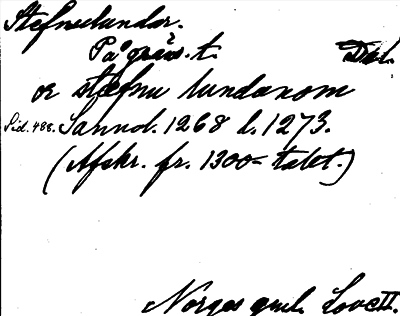 Stefnulundar.
På grås. t. Dal.
or stæfnu lundanom
Sid. 488. Sannd. 1268 l. 1273.
(Afskr. fr. 1300-talet.)
Norges gml. Love II.